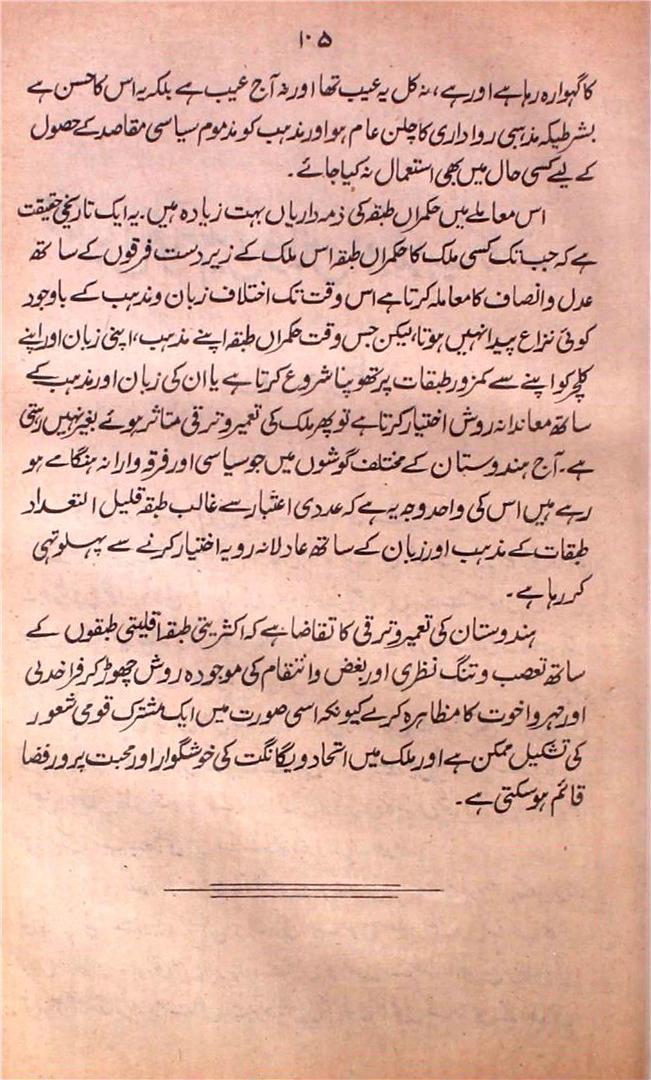 ۱۰۵
کا گہوارہ رہا ہے اور ہے، نہ کل یہ عیب تھا اور نہ آج عیب ہے بلکہ یہ اس کا حسن ہے
بشرطیکہ مذہبی رواداری کا چلن عام ہو اور مذہب کو مذموم سیاسی مقاصد کے حصول
کے لیے کسی حال میں بھی استعمال نہ کیا جائے۔
اس معاملے میں حکمراں طبقہ کی ذمہ داریاں بہت زیادہ ہیں۔ یہ ایک تاریخی حقیقت
ہے کہ جب تک کسی ملک کا حکمراں طبقہ اس ملک کے زیر دست فرقوں کے ساتھ
عدل و انصاف کا معاملہ کرتا ہے اس وقت تک اختلاف زبان و مذہب کے باوجود
کوئی نزاع پیدا نہیں ہوتا، لیکن جس وقت حکمراں طبقہ اپنے مذہب، اپنی زبان اور اپنے
کلچر کو اپنے سے کمزور طبقات پر تھوپنا شروع کرتا ہے یا ان کی زبان اور مذہب کے
ساتھ معاندانہ روش اختیار کرتا ہے تو پھر ملک کی تعمیر و ترقی متاثر ہوئے بغیر نہیں رہتی
ہے۔ آج ہندوستان کے مختلف گوشوں میں جو سیاسی اور فرقہ وارانہ ہنگامے ہو
رہے ہیں اس کی واحد وجہ یہ ہے کہ عددی اعتبار سے غالب طبقہ قلیل التعداد
طبقات کے مذہب اور زبان کے ساتھ عادلانہ رویہ اختیار کرنے سے پہلو تہی
کر رہا ہے۔
ہندوستان کی تعمیر و ترقی کا تقاضا ہے کہ اکثریتی طبقہ اقلیتی طبقوں کے
ساتھ تعصب و تنگ نظری اور بغض و انتقام کی موجودہ روش چھوڑ کر فراخدلی
اور مہر و اخوت کا مظاہرہ کرے کیونکہ اسی صورت میں ایک مشترک قومی شعور
کی تشکیل ممکن ہے اور ملک میں اتحاد و یگانگت کی خوشگوار اور محبت پرور فضا
قائم ہو سکتی ہے۔